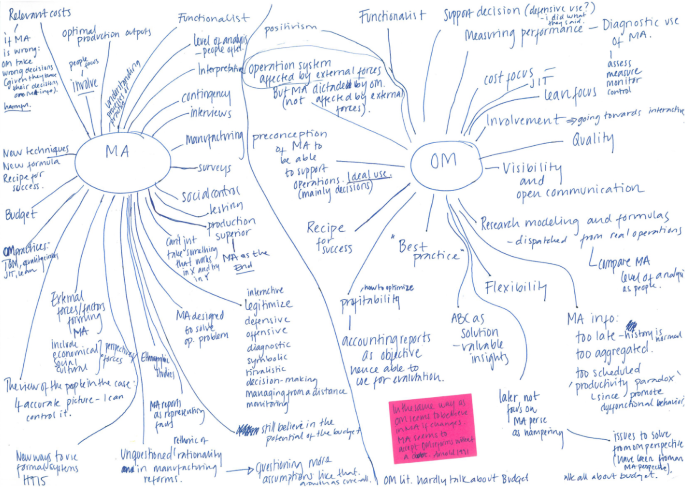 Relevant costs
if MA
is wrong:
OM take
wrong decisions
human.
optimal
production outputs
people focus
involve
Understanding
Functionalist
Level of analysis
- people often
Interpretative
contingency
interviews
manufacturing
surveys
social control
leshing
production
superior
MA as the
End
MA
New techniques
New formula
Recipe for
success.
Budget
OM practices:
JIT, lean
Can't just
take something
that works
in X and try
in Y
External
forces/factors
forming
MA
Include
economical
cultural
perspectives/
forces
MA designed
to solve
op. problem
interactive
legitimize
defensive
offensive
diagnostic
symbolic
ritualistic
decision-making
managing from a distance
monitoring
The view of the people in the case:
accurate picture - I can
control it.
studies
MA reports
as representing
facts
still believe in the
potential of the budget
New ways to use
formal systems
Unquestioned rationality
in manufacturing
reforms.
Questioning more
assumptions like that.
positivism
Functionalist
Support decision (defensive use?)
- I did what
they said.
Measuring performance
Diagnostic use
of MA.
assess
measure
monitor
control
Operation system
affected by external forces
But MA dictated by OM.
(not affected by external
forces).
cost focus
JIT
lean focus
Involvement → going towards interactive
Quality
preconception
of MA to
be able
to support
operations. Ideal use.
(mainly decisions)
OM
Visibility
and
open communication
Recipe
for
success
"Best
practice"
Research modeling and formulas
- dispatched from real operations
compare MA
level of analysis
as people.
how to optimize
profitability
Flexibility
accounting reports
as objective
hence able to
use for evaluation.
ABC as
solution
- valuable
insights
MA info:
too late - history is
too aggregated.
too scheduled
"productivity paradox"
since promote
dysfunctional behavior
In the same way as
MA seems to
later not
focus on
MA
as hampering
issues to solve
from OM perspective
(have been from an
MA perspective).
OM lit. hardly talk about Budget
talk all about budget.